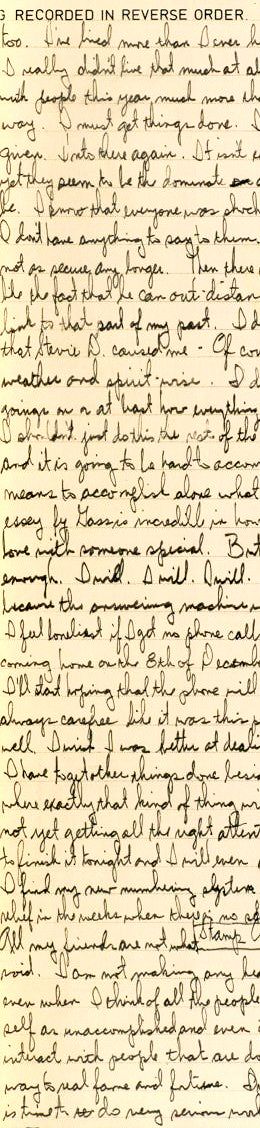 G RECORDED IN REVERSE ORDER.
too. I've lived more than I ever h
I really didn't live that much at al
with people this year much more tha
way. I must get things done. I
given. Into there again. It isn't e
yet they seem to be the dominate
be. I know that everyone was shoc
I don't have anything to say to them.
not as secure any longer. Then there
like the fact that he can out-distan
link to that part of my past. I d
that Stevie D. caused me - Of cou
weather and spirit-wise. I d
goings on or at least how everything
I shouldn't just do this the rest of the
and it is going to be hard to accom
means to accomplish alone what
essay by Gass is incredible in how
love with someone special. But
enough. I will. I will. I will.
because the answering machine
I feel loneliest if I get no phone call
coming home on the 8th of Decemb
I'll start hoping that the phone will
always carefree like it was this p
well. I wish I was better at deali
I have to get other things done besi
where exactly that kind of thing wi
not yet getting all the right attent
to finish it tonight and I will even
I find my new numbering system
relief in the weeks when there is no s
All my friends are not what Stamp
void. I am not making any hea
even when I think of all the people
self as unaccomplished and even i
interact with people that are do
way to real fame and fortune. I
is time to do very serious wor